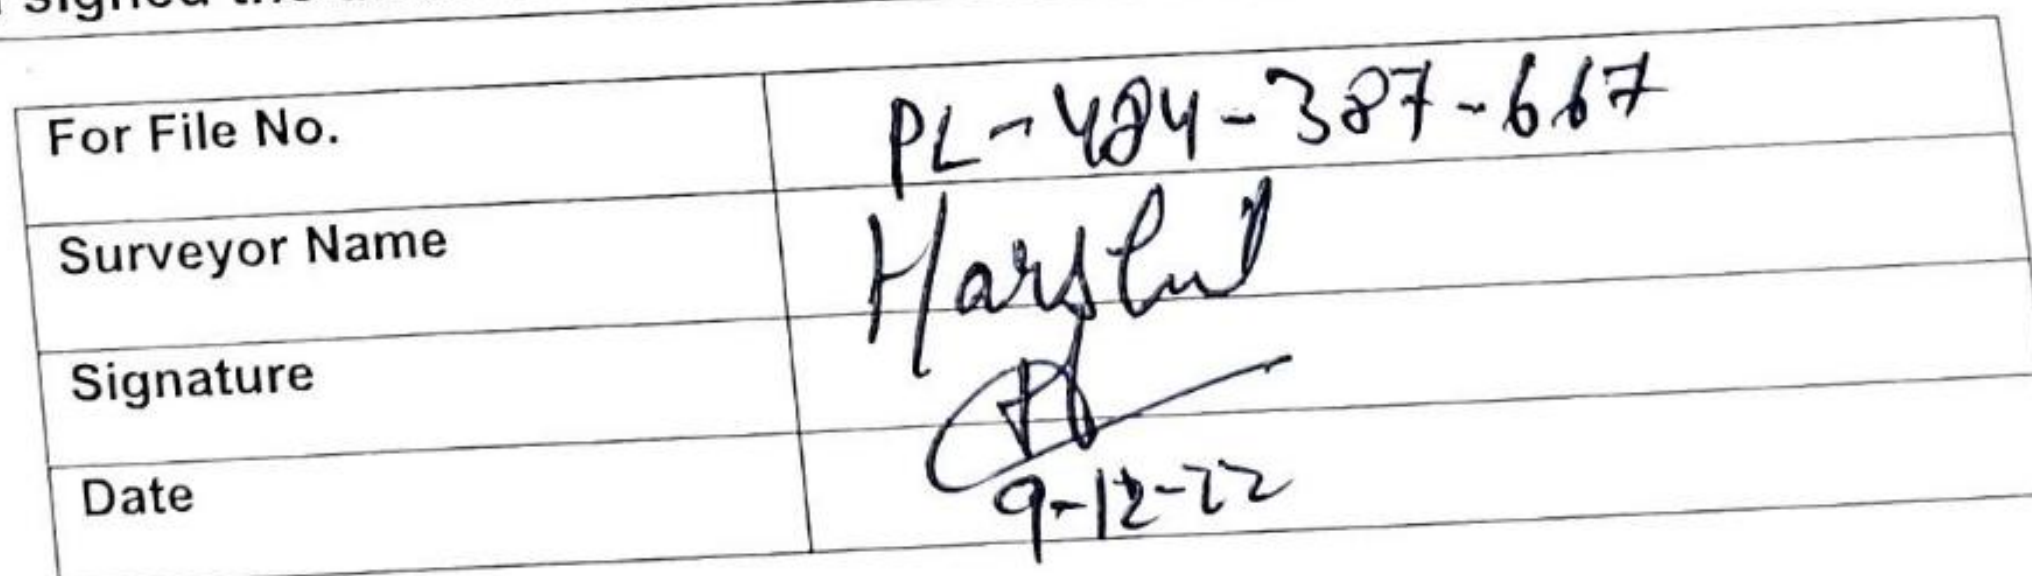 signed the
For File No. PL-484-387-667
Surveyor Name Harshul
Signature
Date 9-12-22